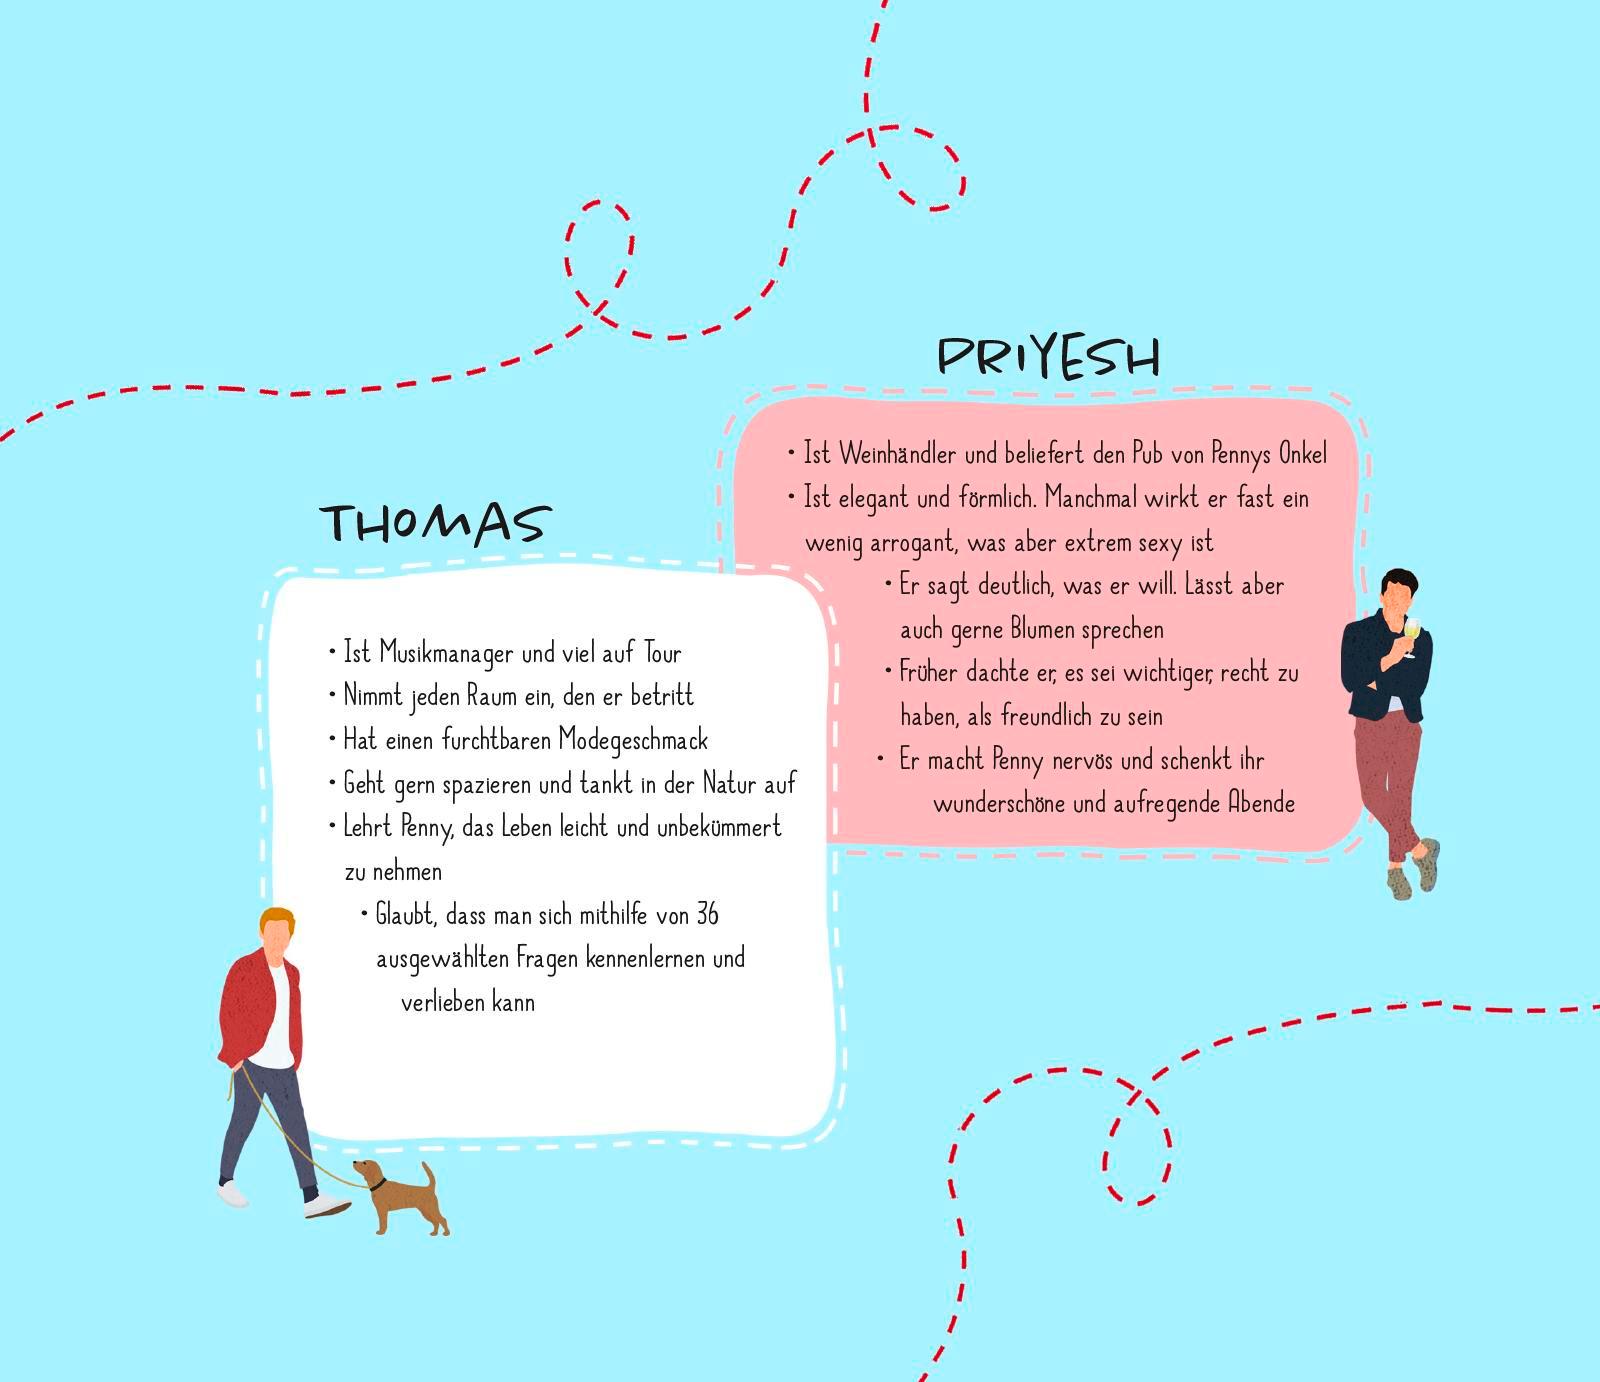 PRIYESH
• Ist Weinhändler und beliefert den Pub von Pennys Onkel
• Ist elegant und förmlich. Manchmal wirkt er fast ein
wenig arrogant, was aber extrem sexy ist
• Er sagt deutlich, was er will. Lässt aber
auch gerne Blumen sprechen
• Früher dachte er, es sei wichtiger, recht zu
haben, als freundlich zu sein
• Er macht Penny nervös und schenkt ihr
wunderschöne und aufregende Abende
THOMAS
• Ist Musikmanager und viel auf Tour
• Nimmt jeden Raum ein, den er betritt
• Hat einen furchtbaren Modegeschmack
• Geht gern spazieren und tankt in der Natur auf
• Lehrt Penny, das Leben leicht und unbekümmert
zu nehmen
• Glaubt, dass man sich mithilfe von 36
ausgewählten Fragen kennenlernen und
verlieben kann